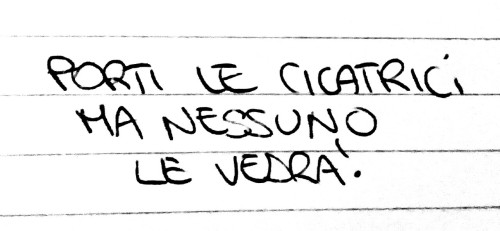 PORTI LE CICATRICI
MA NESSUNO
LE VEDRA'.